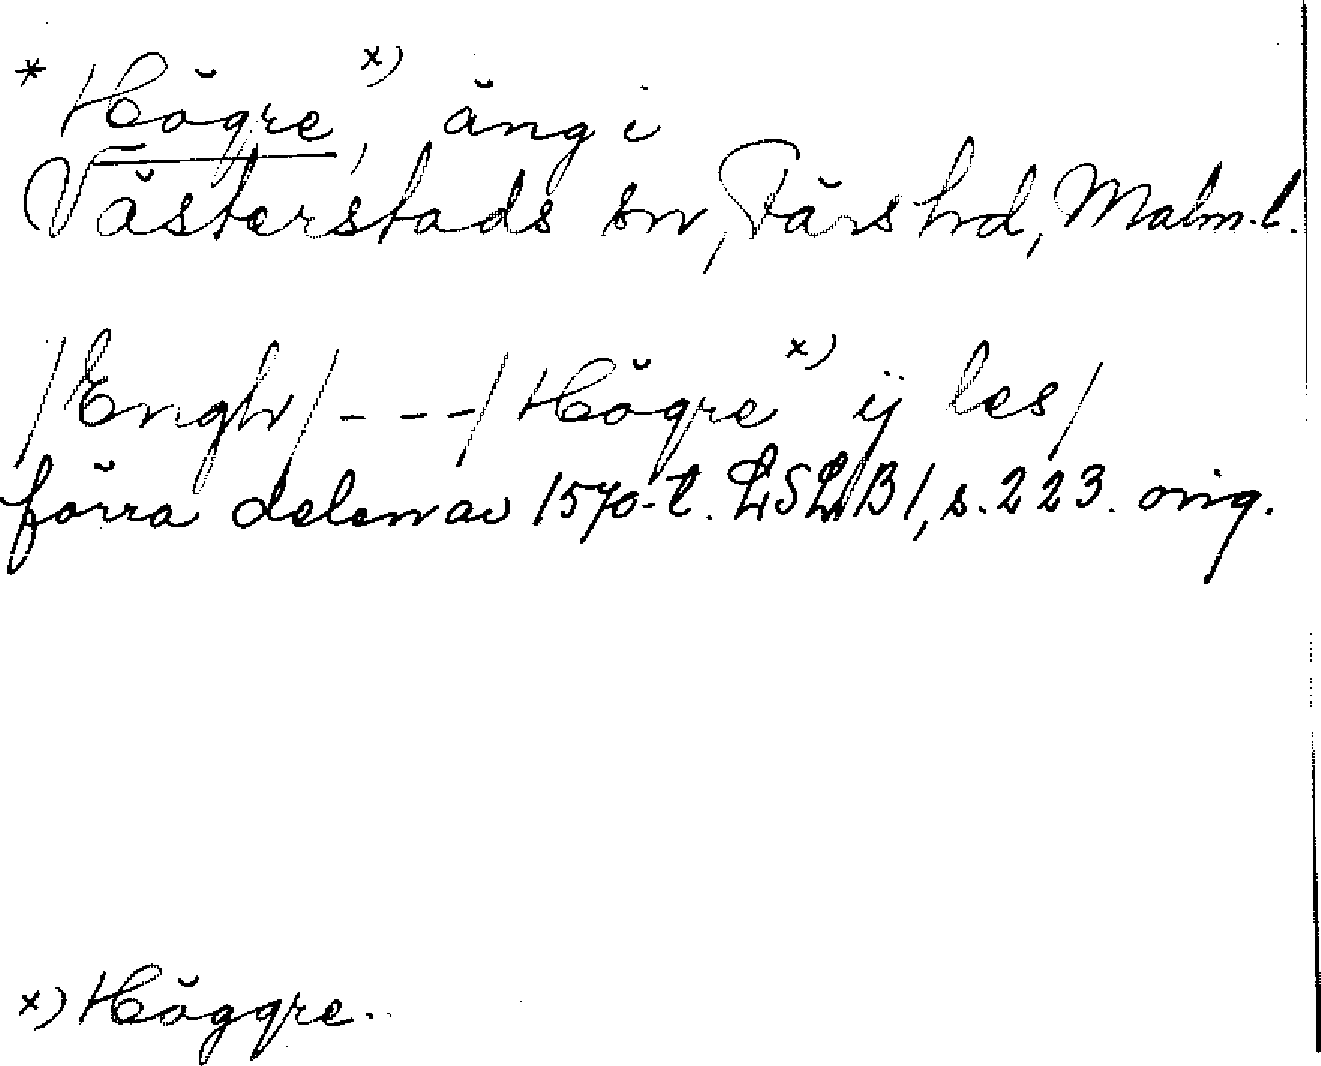 * Högre x), äng i
Västerstads sn, Färs hd, Malm. l.
/Engh/ - - - / Högre x) ij les /
förra delen av 1570-t. LSLB 1, s. 223. orig.
x) Höggre.